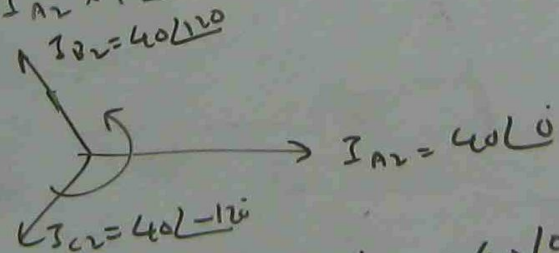 I_B2 = 40∠120
I_A2 = 40∠0°
I_C2 = 40∠-120°